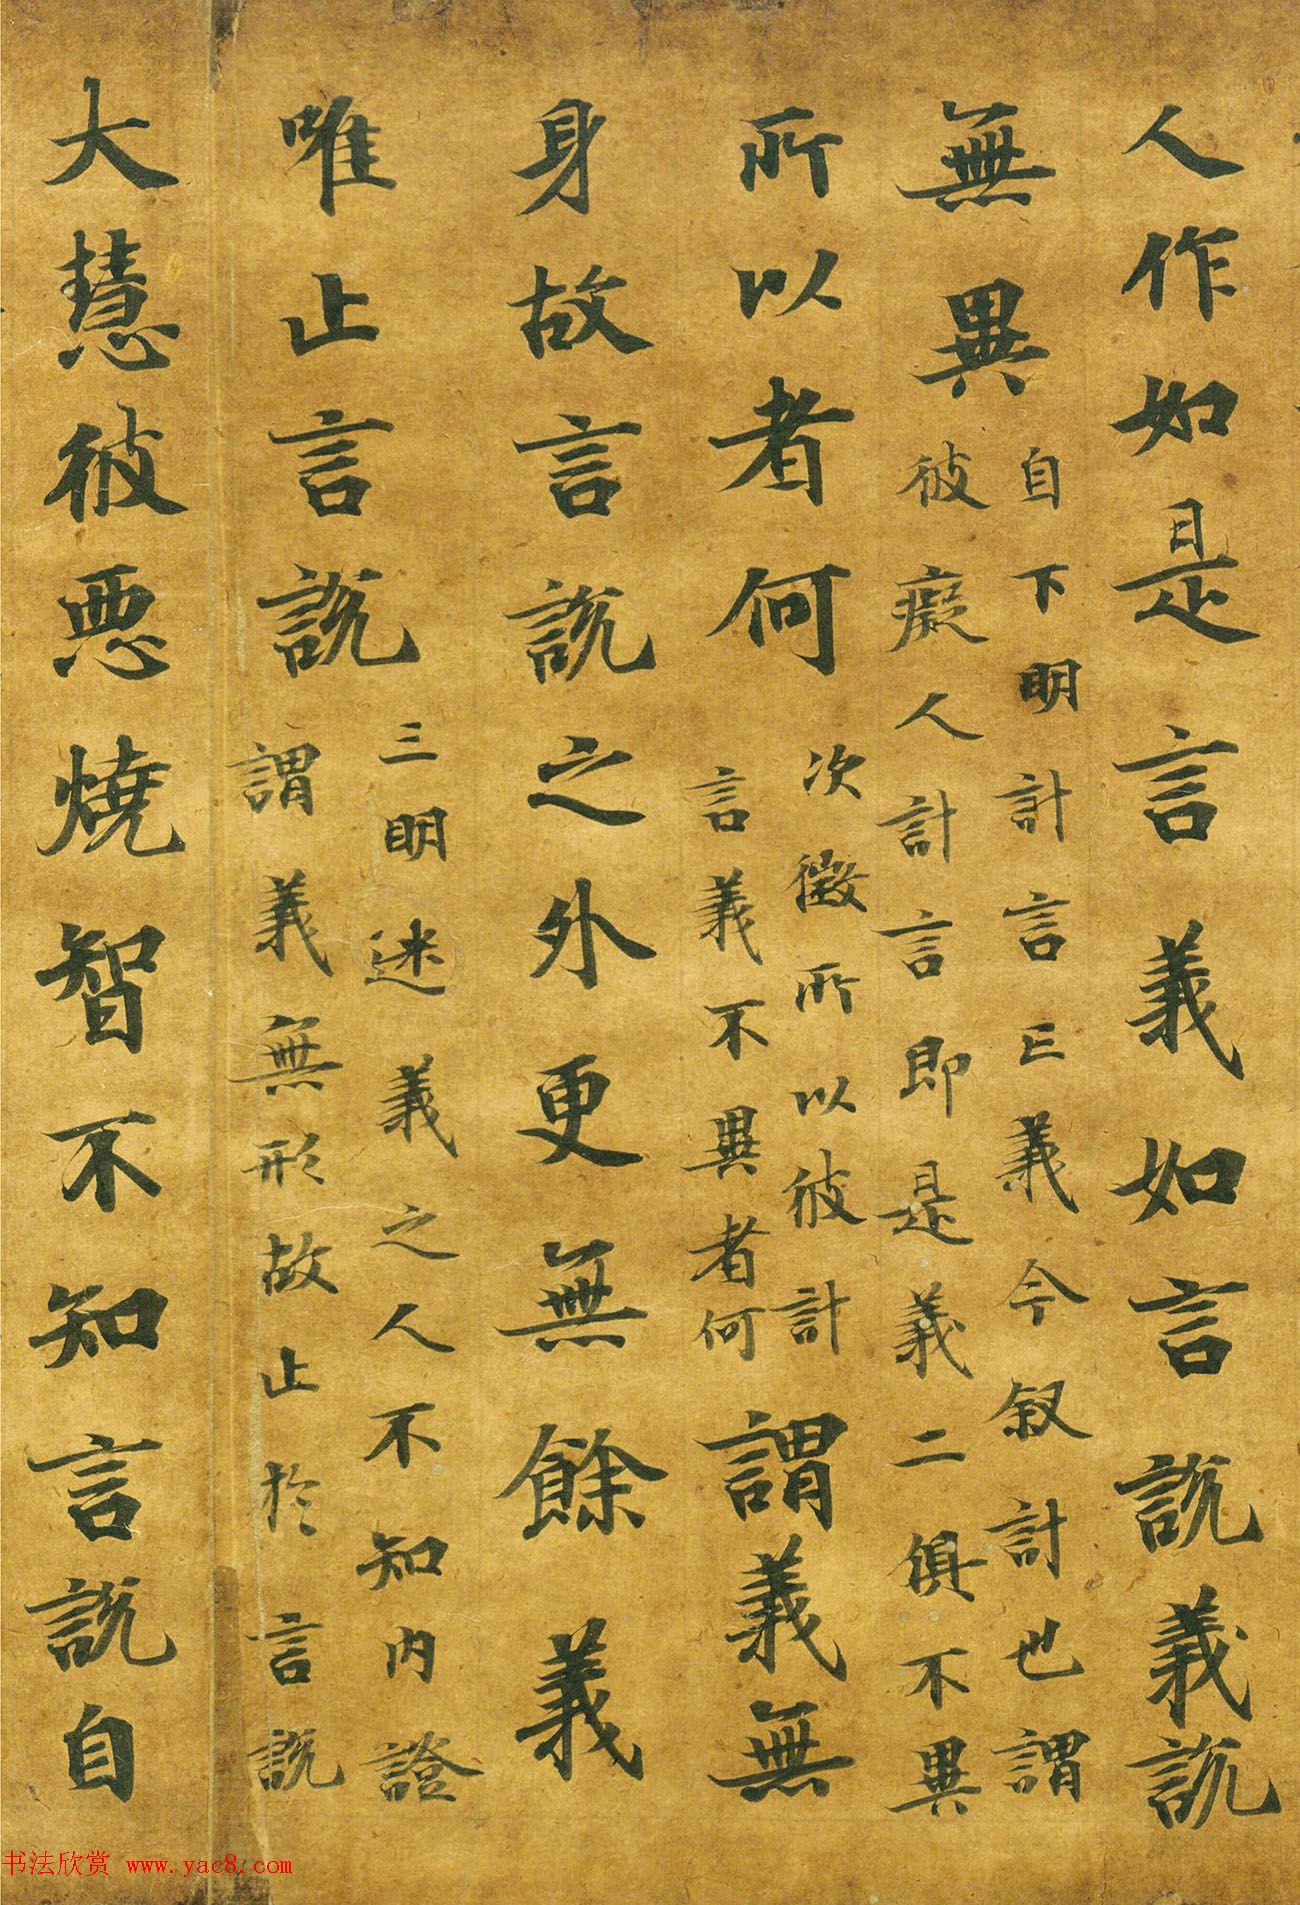 人作如是言義如言說義說
無異
自下明計言亡義今叙計也謂
彼癡人計言即是義二俱不異
所以者何
次徵所以彼計
言義不異者何
謂義無
身故言說之外更無餘義
唯止言說
三明迷義之人不知內證
謂義無形故止於言說
大慧彼惡燒智不知言說自
书法欣赏 www.yac8.com